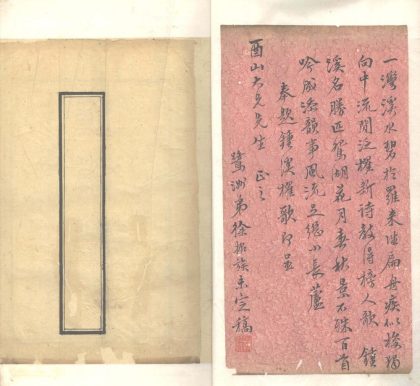 一灣溪水碧於羅來往扁舟疾似梭獨
向中流閒泛櫂新詩教得榜人歌 鍾
溪名勝匹鴛湖花月春秋景不殊百首
吟成添韻事風流足繼小長蘆
奉題鍾溪櫂歌即呈
酉山大兄先生 正之
鷺洲弟徐 未定稿